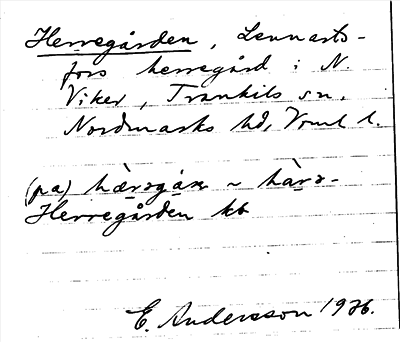 Herregården, Lennarts-
fors herregård i N.
Viker, Trankils sn,
Nordmarks hd, Vrml l.
(pa) hærsgán ~ hàrs-
Herregården kb
E. Andersson 1926.